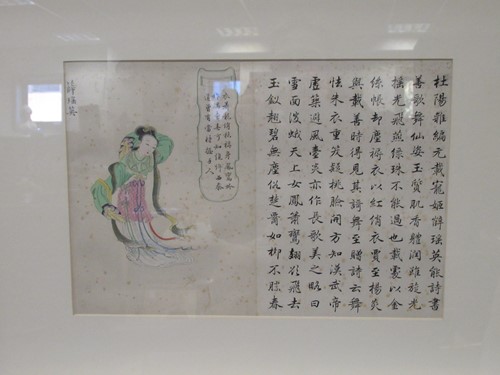 杜陽雜編元載寵姬薛瑤英能詩書
善歌舞仙姿玉質肌香體潤雖旋光
搖光飛燕綠珠不能過也載處以金
絲帳卻塵褥衣以紅綃衣賈至楊炎
與載善時得見其謌舞至贈詩云舞
怯朱衣重笑疑桃臉開方知漢武帝
虛築避風臺炎亦作長歌美之略曰
雪面淡蛾天上女鳳簫鸞翅欲飛去
玉釵翹碧無塵如柳不勝春
薛瑤英